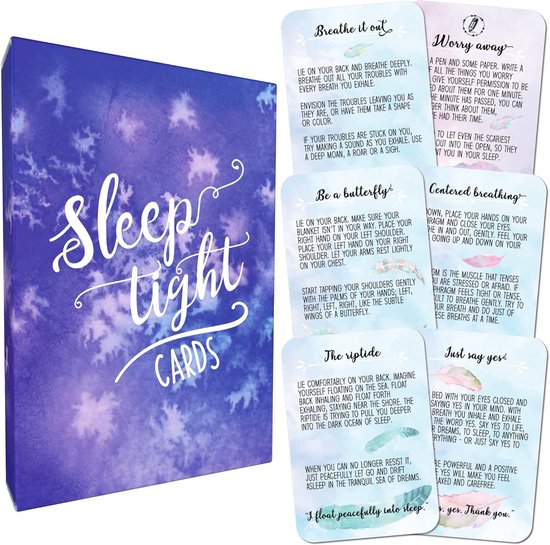 Sleep
tight
CARDS
Breathe it out
LIE ON YOUR BACK AND BREATHE DEEPLY.
BREATHE OUT ALL YOUR TROUBLES WITH
EVERY BREATH YOU EXHALE.
ENVISION THE TROUBLES LEAVING YOU AS
THEY ARE, OR HAVE THEM TAKE A SHAPE
OR COLOR.
IF YOUR TROUBLES ARE STUCK ON YOU,
TRY MAKING A SOUND AS YOU EXHALE. USE
A DEEP MOAN, A ROAR OR A SIGH.
Worry away
A PEN AND SOME PAPER. WRITE A
F ALL THE THINGS YOU WORRY
GIVE YOURSELF PERMISSION TO BE
ED ABOUT THEM FOR ONE MINUTE.
MINUTE HAS PASSED, YOU CAN
ER THINK ABOUT THEM,
E HAD THEIR TIME.
TO LET EVEN THE SCARIEST
OUT INTO THE OPEN, SO THEY
UNT YOU IN YOUR SLEEP.
Be a butterfly
LIE ON YOUR BACK. MAKE SURE YOUR
BLANKET ISN'T IN YOUR WAY. PLACE YOUR
RIGHT HAND ON YOUR LEFT SHOULDER.
PLACE YOUR LEFT HAND ON YOUR RIGHT
SHOULDER. LET YOUR ARMS REST LIGHTLY
ON YOUR CHEST.
START TAPPING YOUR SHOULDERS GENTLY
WITH THE PALMS OF YOUR HANDS; LEFT,
RIGHT, LEFT, RIGHT, LIKE THE SUBTLE
WINGS OF A BUTTERFLY.
Centered breathing
OWN, PLACE YOUR HANDS ON YOUR
PHRAGM AND CLOSE YOUR EYES.
HE IN AND OUT, GENTLY. FEEL YOUR
GOING UP AND DOWN ON YOUR
GM IS THE MUSCLE THAT TENSES
OU ARE STRESSED OR AFRAID. IF
PHRAGM FEELS TIGHT OR TENSE,
ICULT TO BREATHE GENTLY. TRY TO
YOUR BREATH AND DO JUST OF
ESE BREATHS AT A TIME.
The riptide
LIE COMFORTABLY ON YOUR BACK. IMAGINE
YOURSELF FLOATING ON THE SEA. FLOAT
BACK INHALING AND FLOAT FORTH
EXHALING, STAYING NEAR THE SHORE. THE
RIPTIDE IS TRYING TO PULL YOU DEEPER
INTO THE DARK OCEAN OF SLEEP.
WHEN YOU CAN NO LONGER RESIST IT,
JUST PEACEFULLY LET GO AND DRIFT
ASLEEP IN THE TRANQUIL SEA OF DREAMS.
"I float peacefully into sleep."
Just say yes
BED WITH YOUR EYES CLOSED AND
SAYING YES IN YOUR MIND. WITH
BREATH YOU INHALE AND EXHALE
THE WORD YES. SAY YES TO LIFE,
R DREAMS, TO SLEEP, TO ANYTHING
YTHING - OR JUST SAY YES TO
E POWERFUL AND A POSITIVE
E YES WILL MAKE YOU FEEL
AXED AND CAREFREE.
s, yes. Thank you."